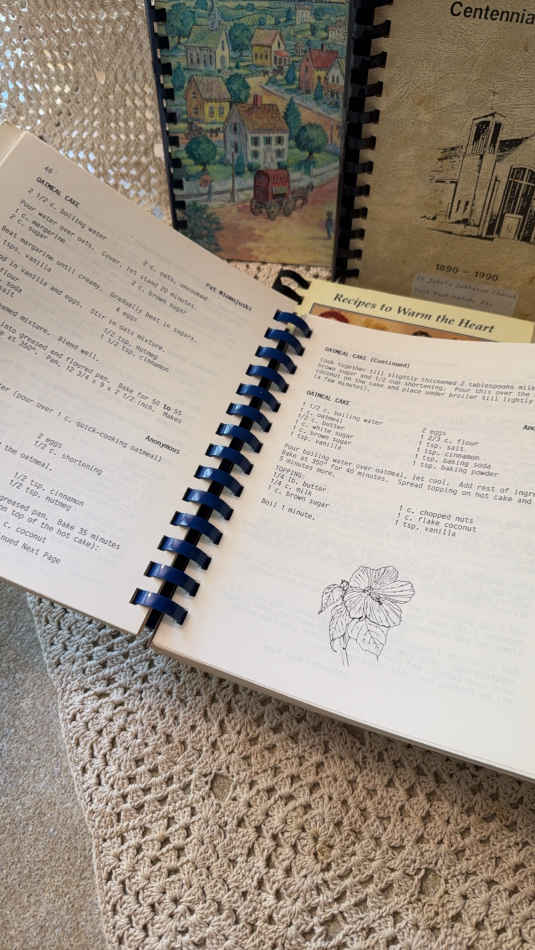 Centennia
1890 - 1990
Recipes to Warm the Heart
46
OATMEAL CAKE
2 1/2 c. boiling water
2 c. oats, uncooked
Pour water over oats. Cover, let stand 20 minutes
1 c. margarine
2 c. brown sugar
2 c. sugar
4 eggs
Beat margarine until creamy. Gradually beat in sugars,
tsps. vanilla
ng in vanilla and eggs. Stir in oats mixture.
flour
1/2 tsp. nutmeg
soda
1 1/2 tsp. cinnamon
salt
amed mixture. Blend well.
into greased and floured pan. Bake for 50 to 55
at 350°. Pan, 12 3/4 x 9 x 2 1/2 inch. Makes
Anonymous
ter (pour over 1 c. quick-cooking oatmeal)
2 eggs
1/2 c. shortening
the oatmeal.
1/2 tsp. cinnamon
1/2 tsp. nutmeg
greased pan. Bake 35 minutes
on top of the hot cake):
c. coconut
nued Next Page
OATMEAL CAKE (Continued)
Cook together till slightly thickened 2 tablespoons milk
brown sugar and 1/2 cup shortening. Pour this over the
coconut on the cake and place under broiler till lightly
(a few minutes).
OATMEAL CAKE
1 1/2 c. boiling water
2 eggs
1 c. oatmeal
1 2/3 c. flour
1/2 c. butter
1 tsp. salt
1 c. white sugar
1 tsp. cinnamon
1 c. brown sugar
1 tsp. baking soda
1 tsp. vanilla
1 tsp. baking powder
Pour boiling water over oatmeal, let cool. Add rest of ingre
Bake at 350° for 40 minutes. Spread topping on hot cake and
5 minutes more.
TOPPING:
1/4 lb. butter
1 c. chopped nuts
1/4 c. milk
1 c. flake coconut
1 c. brown sugar
1 tsp. vanilla
Boil 1 minute.